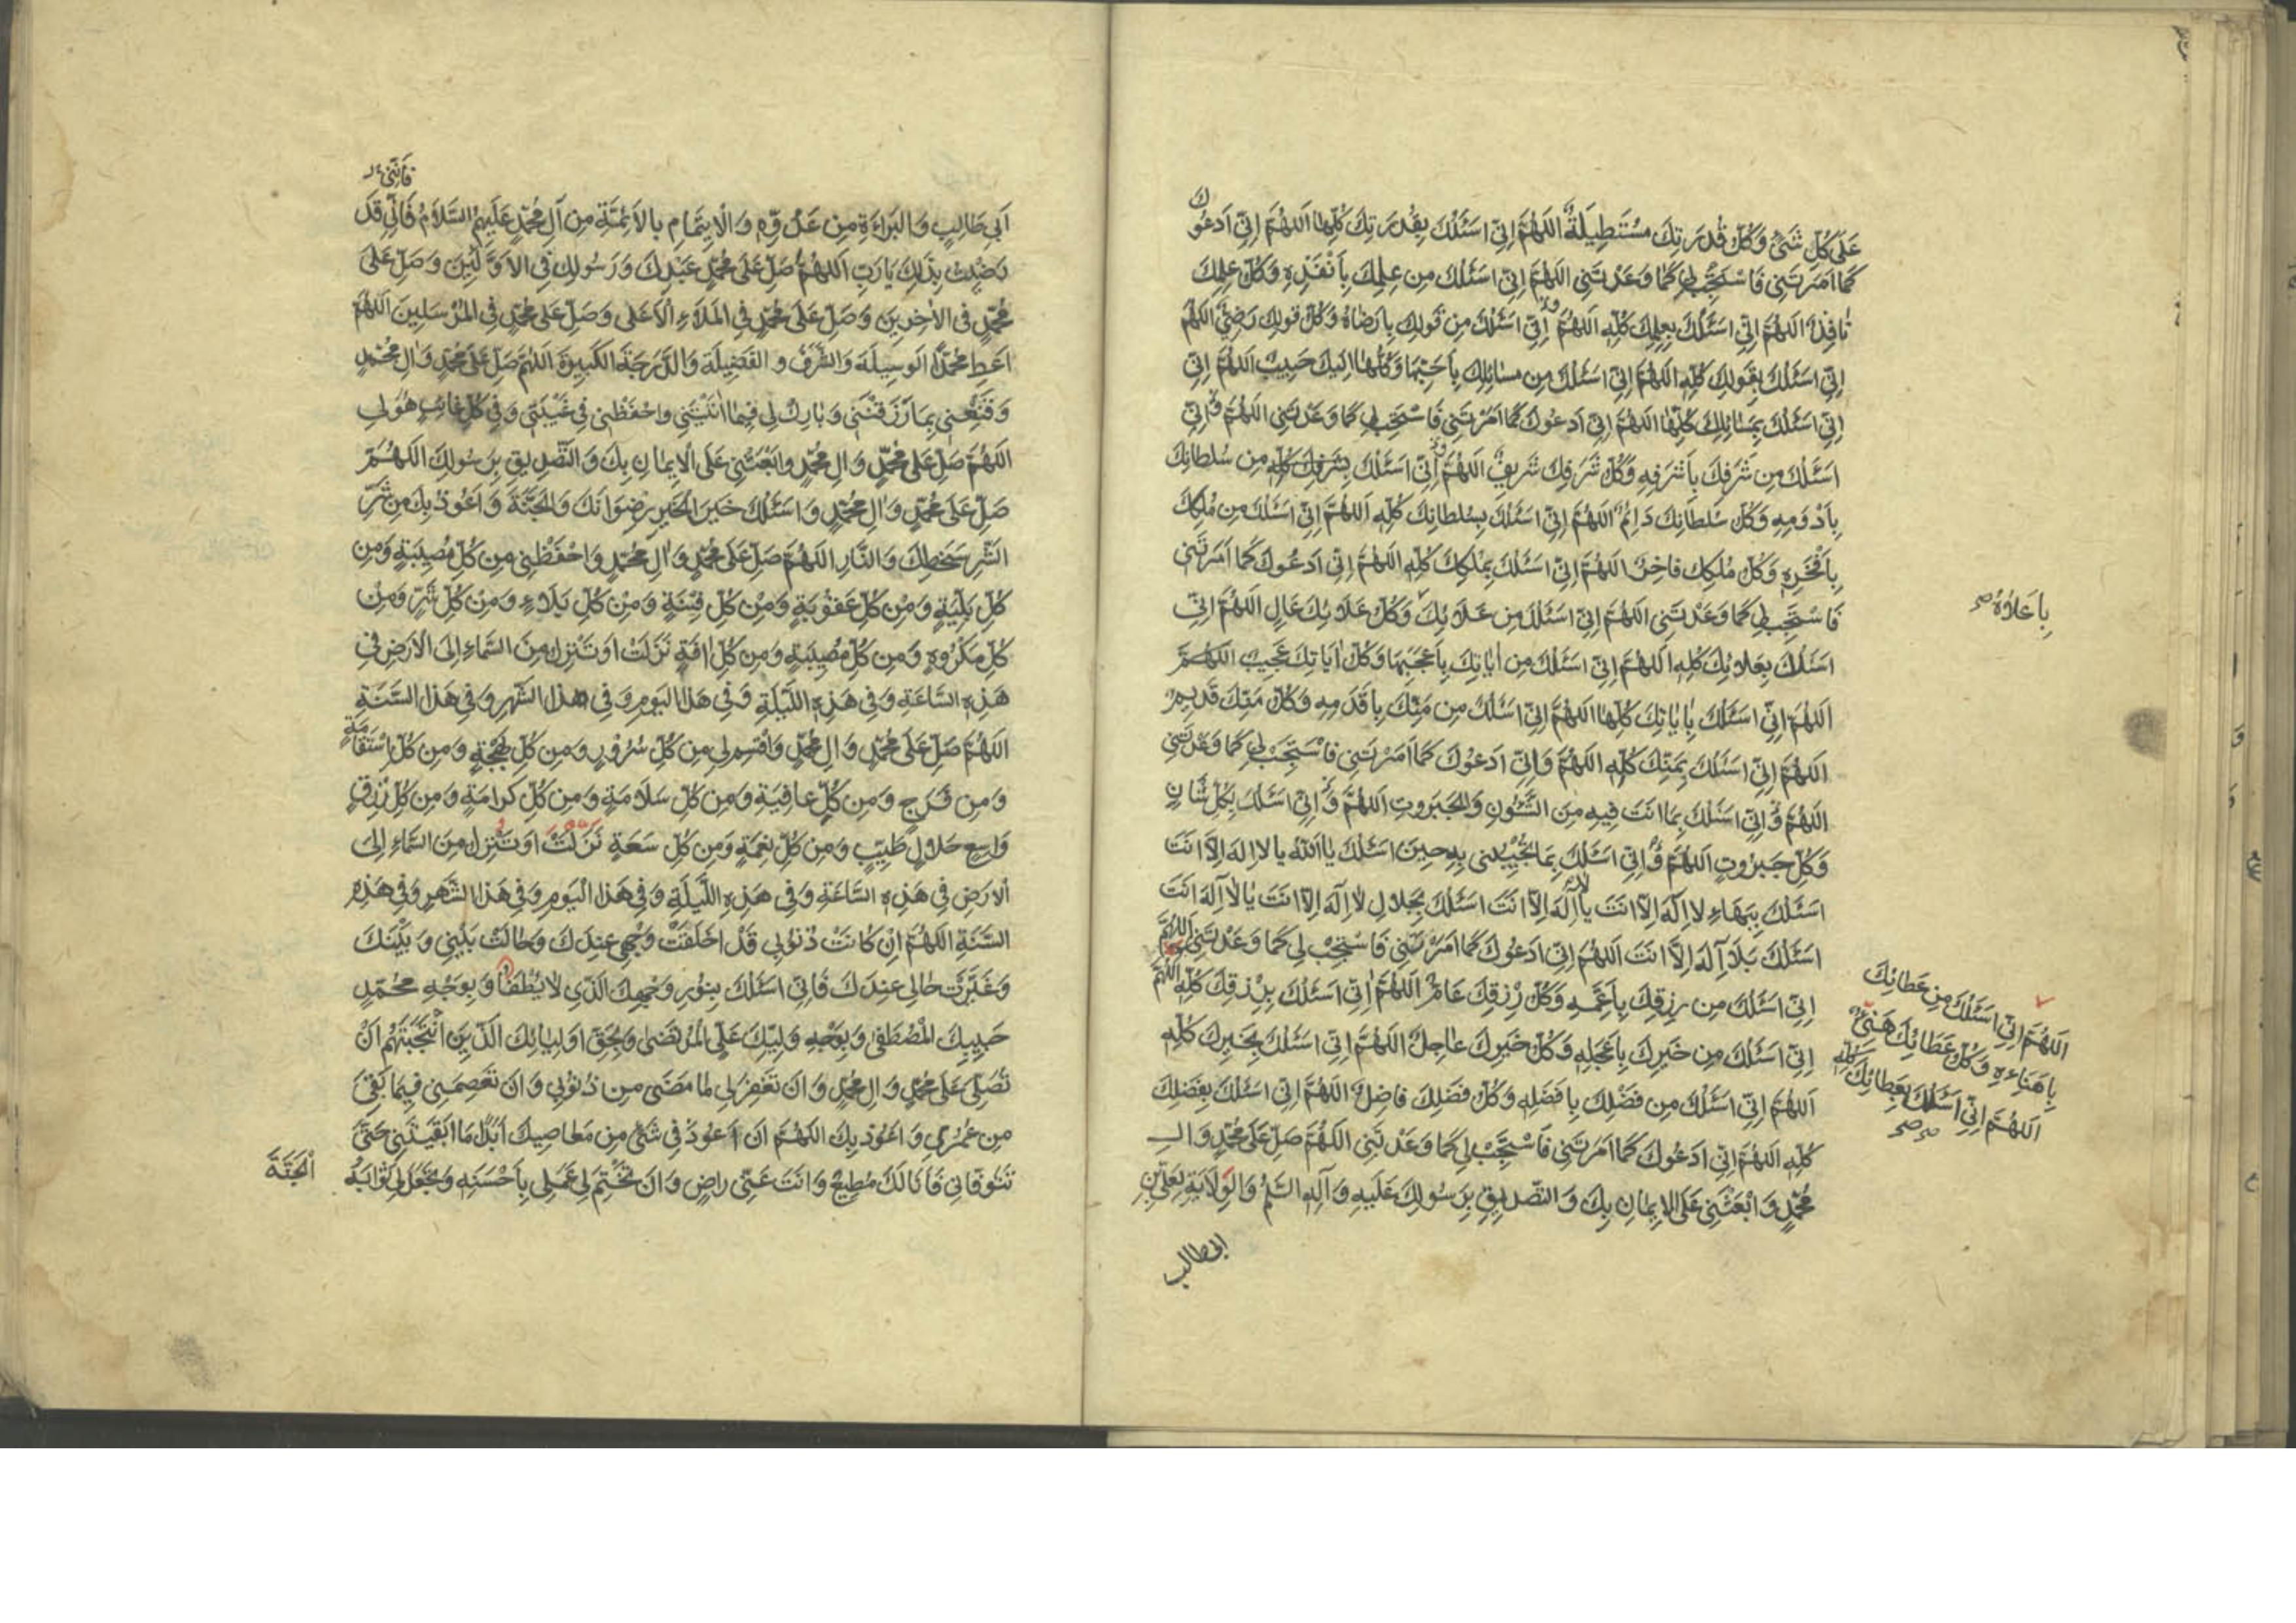 عَلى كُلِّ شَيْءٍ وَكُلُّ قُدْرَتِكَ مُسْتَطِيلَةٌ اَللّهُمَّ اِنّي اَسْئَلُكَ بِقُدْرَتِكَ كُلِّها اَللّهُمَّ اِنّي اَدْعُوكَ
كَما اَمَرْتَني فَاسْتَجِبْ لي كَما وَعَدْتَني اَللّهُمَّ اِنّي اَسْئَلُكَ مِن عِلْمِكَ بِاَنْفَذِهِ وَكُلُّ عِلْمِكَ
نافِذٌ اَللّهُمَّ اِنّي اَسْئَلُكَ بِعِلْمِكَ كُلِّهِ اَللّهُمَّ اِنّي اَسْئَلُكَ مِن قَولِكَ بِاَرْضاهُ وَكُلُّ قَولِكَ رَضِيٌّ اللّهُمَّ
اِنّي اَسْئَلُكَ بِقَولِكَ كُلِّهِ اَللّهُمَّ اِنّي اَسْئَلُكَ مِن مَسائِلِكَ بِاَحَبِّها وَكُلُّها اِلَيكَ حَبيبٌ اَللّهُمَّ اِنّي
اِنّي اَسْئَلُكَ بِمَسائِلِكَ كُلِّها اَللّهُمَّ اِنّي اَدْعُوكَ كَما اَمَرْتَني فَاسْتَجِبْ لي كَما وَعَدْتَني اَللّهُمَّ وَاِنّي
اَسْئَلُكَ مِن شَرَفِكَ بِاَشْرَفِهِ وَكُلُّ شَرَفِكَ شَريفٌ اَللّهُمَّ اِنّي اَسْئَلُكَ بِشَرَفِكَ كُلِّهِ مِن سُلطانِكَ
بِاَدْوَمِهِ وَكُلُّ سُلطانِكَ دائِمٌ اَللّهُمَّ اِنّي اَسْئَلُكَ بِسُلطانِكَ كُلِّهِ اَللّهُمَّ اِنّي اَسْئَلُكَ مِن مُلْكِكَ
بِاَفْخَرِهِ وَكُلُّ مُلْكِكَ فاخِرٌ اَللّهُمَّ اِنّي اَسْئَلُكَ بِمُلْكِكَ كُلِّهِ اَللّهُمَّ اِنّي اَدْعُوكَ كَما اَمَرْتَني
فَاسْتَجِبْ لي كَما وَعَدْتَني اَللّهُمَّ اِنّي اَسْئَلُكَ مِن عَلائِكَ وَكُلُّ عَلائِكَ عالٍ اَللّهُمَّ اِنّي
بِاَعْلاهُ صح
اَسْئَلُكَ بِعَلائِكَ كُلِّهِ اَللّهُمَّ اِنّي اَسْئَلُكَ مِن اياتِكَ بِاَعْجَبِها وَكُلُّ اياتِكَ عَجيبٌ اَللّهُمَّ
اَللّهُمَّ اِنّي اَسْئَلُكَ بِاياتِكَ كُلِّها اَللّهُمَّ اِنّي اَسْئَلُكَ مِن مَنِّكَ بِاَقْدَمِهِ وَكُلُّ مَنِّكَ قَديمٌ
اَللّهُمَّ اِنّي اَسْئَلُكَ بِمَنِّكَ كُلِّهِ اَللّهُمَّ وَاِنّي اَدْعُوكَ كَما اَمَرْتَني فَاسْتَجِبْ لي كَما وَعَدْتَني
اَللّهُمَّ وَاِنّي اَسْئَلُكَ بِما اَنْتَ فيهِ مِنَ الشُّئُونِ وَالْجَبَرُوتِ اَللّهُمَّ وَاِنّي اَسْئَلُكَ بِكُلِّ شَانٍ
وَكُلِّ جَبَرُوتٍ اَللّهُمَّ وَاِنّي اَسْئَلُكَ بِما تُجيبُني بِهِ حينَ اَسْئَلُكَ يا اَللّهُ يا لا اِلهَ اِلاّ اَنْتَ
اَسْئَلُكَ بِبَهاءِ لا اِلهَ اِلاّ اَنْتَ يا لا اِلهَ اِلاّ اَنْتَ اَسْئَلُكَ بِجَلالِ لا اِلهَ اِلاّ اَنْتَ يا لا اِلهَ اِلاّ اَنْتَ
اَسْئَلُكَ بِلا اِلهَ اِلاّ اَنْتَ اَللّهُمَّ اِنّي اَدْعُوكَ كَما اَمَرْتَني فَاسْتَجِبْ لي كَما وَعَدْتَني اَللّهُمَّ
اِنّي اَسْئَلُكَ مِن رِزْقِكَ بِاَعَمِّهِ وَكُلُّ رِزْقِكَ عامٌّ اَللّهُمَّ اِنّي اَسْئَلُكَ بِرِزْقِكَ كُلِّهِ اَللّهُمَّ
اَللّهُمَّ اِنّي اَسْئَلُكَ مِن عَطائِكَ
بِاَهْناءِهِ وَكُلُّ عَطائِكَ هَنيٌّ
اَللّهُمَّ اِنّي اَسْئَلُكَ بِعَطائِكَ كُلِّهِ
صح صح
اِنّي اَسْئَلُكَ مِن خَيرِكَ بِاَعْجَلِهِ وَكُلُّ خَيرِكَ عاجِلٌ اَللّهُمَّ اِنّي اَسْئَلُكَ بِخَيرِكَ كُلِّهِ
اَللّهُمَّ اِنّي اَسْئَلُكَ مِن فَضْلِكَ بِاَفْضَلِهِ وَكُلُّ فَضْلِكَ فاضِلٌ اَللّهُمَّ اِنّي اَسْئَلُكَ بِفَضْلِكَ
كُلِّهِ اَللّهُمَّ اِنّي اَدْعُوكَ كَما اَمَرْتَني فَاسْتَجِبْ لي كَما وَعَدْتَني اَللّهُمَّ صَلِّ عَلى مُحَمَّدٍ وَالِ
مُحَمَّدٍ وَابْعَثْني عَلَى الايمانِ بِكَ وَالتَّصْديقِ بِرَسُولِكَ عَلَيهِ وَآلِهِ السَّلمُ وَالْوَلايَةِ لِعَليِّ بْنِ
ابي طالب
فَاِنَّني
اَبي طالِبٍ وَالْبَراءَةِ مِن عَدُوِّهِ وَالْايتِمامِ بِالاَئِمَّةِ مِن آلِ مُحَمَّدٍ عَلَيهِمُ السَّلامُ فَاِنّي قَدْ
رَضيتُ بِذلِكَ يا رَبِّ اَللّهُمَّ صَلِّ عَلى مُحَمَّدٍ عَبْدِكَ وَرَسُولِكَ فِي الاَوَّلينَ وَصَلِّ عَلى
مُحَمَّدٍ فِي الاخِرينَ وَصَلِّ عَلى مُحَمَّدٍ فِي الْمَلاءِ الاَعْلى وَصَلِّ عَلى مُحَمَّدٍ فِي الْمُرْسَلينَ اَللّهُمَّ
اَعْطِ مُحَمَّدًا الْوَسيلَةَ وَالشَّرَفَ وَالْفَضيلَةَ وَالدَّرَجَةَ الْكَبيرَةَ اَللّهُمَّ صَلِّ عَلى مُحَمَّدٍ وَالِ مُحَمَّدٍ
وَقَنِّعْني بِما رَزَقْتَني وَبارِكْ لي فيما اتَيْتَني وَاحْفَظْني في غَيْبَتي وَفي كُلِّ غائِبٍ هُوَ لي
اَللّهُمَّ صَلِّ عَلى مُحَمَّدٍ وَالِ مُحَمَّدٍ وَابْعَثْني عَلَى الْايمانِ بِكَ وَالتَّصْديقِ بِرَسُولِكَ اَللّهُمَّ
صَلِّ عَلى مُحَمَّدٍ وَالِ مُحَمَّدٍ وَاَسْئَلُكَ خَيرَ الْخَيرِ رِضْوانَكَ وَالْجَنَّةَ وَاَعُوذُ بِكَ مِن شَرِّ
الشَّرِّ سَخَطِكَ وَالنّارِ اَللّهُمَّ صَلِّ عَلى مُحَمَّدٍ وَالِ مُحَمَّدٍ وَاحْفَظْني مِن كُلِّ مُصيبَةٍ وَمِن
كُلِّ بَلِيَّةٍ وَمِنْ كُلِّ عُقُوبَةٍ وَمِنْ كُلِّ فِتْنَةٍ وَمِنْ كُلِّ بَلاءٍ وَمِنْ كُلِّ شَرٍّ وَمِنْ
كُلِّ مَكْرُوهٍ وَمِن كُلِّ مُصيبَةٍ وَمِن كُلِّ افَةٍ نَزَلَتْ اَوْ تَنْزِلُ مِنَ السَّماءِ اِلَى الاَرْضِ في
هذِهِ السّاعَةِ وَفي هذِهِ اللَّيلَةِ وَفي هذَا الْيَومِ وَفي هذَا الشَّهْرِ وَفي هذِهِ السَّنَةِ
اَللّهُمَّ صَلِّ عَلى مُحَمَّدٍ وَالِ مُحَمَّدٍ وَاقْسِمْ لي مِن كُلِّ سُرُورٍ وَمِن كُلِّ بَهْجَةٍ وَمِن كُلِّ اسْتِقامَةٍ
وَمِن فَرَجٍ وَمِن كُلِّ عافِيَةٍ وَمِن كُلِّ سَلامَةٍ وَمِن كُلِّ كَرامَةٍ وَمِن كُلِّ رِزْقٍ
واسِعٍ حَلالٍ طَيِّبٍ وَمِن كُلِّ نِعْمَةٍ وَمِن كُلِّ سَعَةٍ نَزَلَتْ اَوْ تَنْزِلُ مِنَ السَّماءِ اِلَى
الاَرْضِ في هذِهِ السّاعَةِ وَفي هذِهِ اللَّيلَةِ وَفي هذَا الْيَومِ وَفي هذَا الشَّهْرِ وَفي هذِهِ
السَّنَةِ اَللّهُمَّ اِنْ كانَتْ ذُنُوبي قَدْ اَخْلَقَتْ وَجْهي عِنْدَكَ وَحالَتْ بَيْني وَبَيْنَكَ
وَغَيَّرَتْ حالي عِنْدَكَ فَاِنّي اَسْئَلُكَ بِنُورِ وَجْهِكَ الَّذي لا يُطْفَا وَبِوَجْهِ مُحَمَّدٍ
حَبيبِكَ الْمُصْطَفى وَبِوَجْهِ وَلِيِّكَ عَلِيٍّ الْمُرْتَضى وَبِحَقِّ اَولِيائِكَ الَّذينَ انْتَجَبْتَهُمْ اَنْ
تُصَلِّيَ عَلى مُحَمَّدٍ وَالِ مُحَمَّدٍ وَاَنْ تَغْفِرَ لي لِما مَضى مِن ذُنُوبي وَاَنْ تَعْصِمَني فيما بَقِيَ
مِن عُمْري وَاَعُوذُ بِكَ اَللّهُمَّ اَنْ اَعُودَ في شَيْءٍ مِن مَعاصيكَ اَبَدًا ما اَبْقَيْتَني حَتّى
تَتَوَفّاني فَاَنَا لَكَ مُطيعٌ وَاَنْتَ عَنّي راضٍ وَاَنْ تَخْتِمَ لي عَمَلي بِاَحْسَنِهِ وَتَجْعَلَ لي ثَوابَهُ
اَلْجَنَّةَ